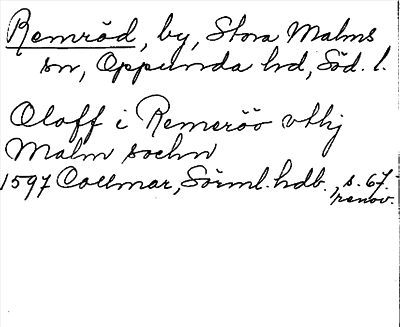 Remröd, by, Stora Malms
sn, Oppunda hd, Söd. l.
Oloff i Remeröö vthj
Malm sochn
1597 Collmar, Sörml. hdb., s. 67.
renov.